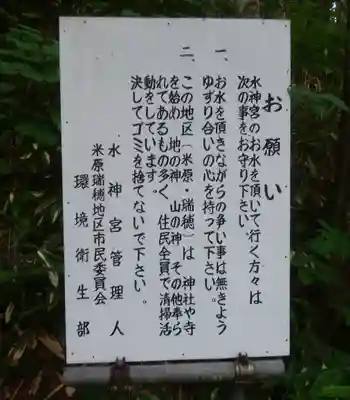 お願い
水神宮のお水を頂いて行く方々は
次の事をお守り下さい
一、お水を頂きながらの争い事は無きよう
ゆずり合いの心を持って下さい。
二、この地区(米原・瑞穂)は 神社や寺
を始め 地の神 山の神 その他奉ら
れてあるもの多く 住民全員で清掃活
動をしています。
決してゴミを捨てないで下さい。
水神宮管理人
米原瑞穂地区市民委員会
環境衛生部